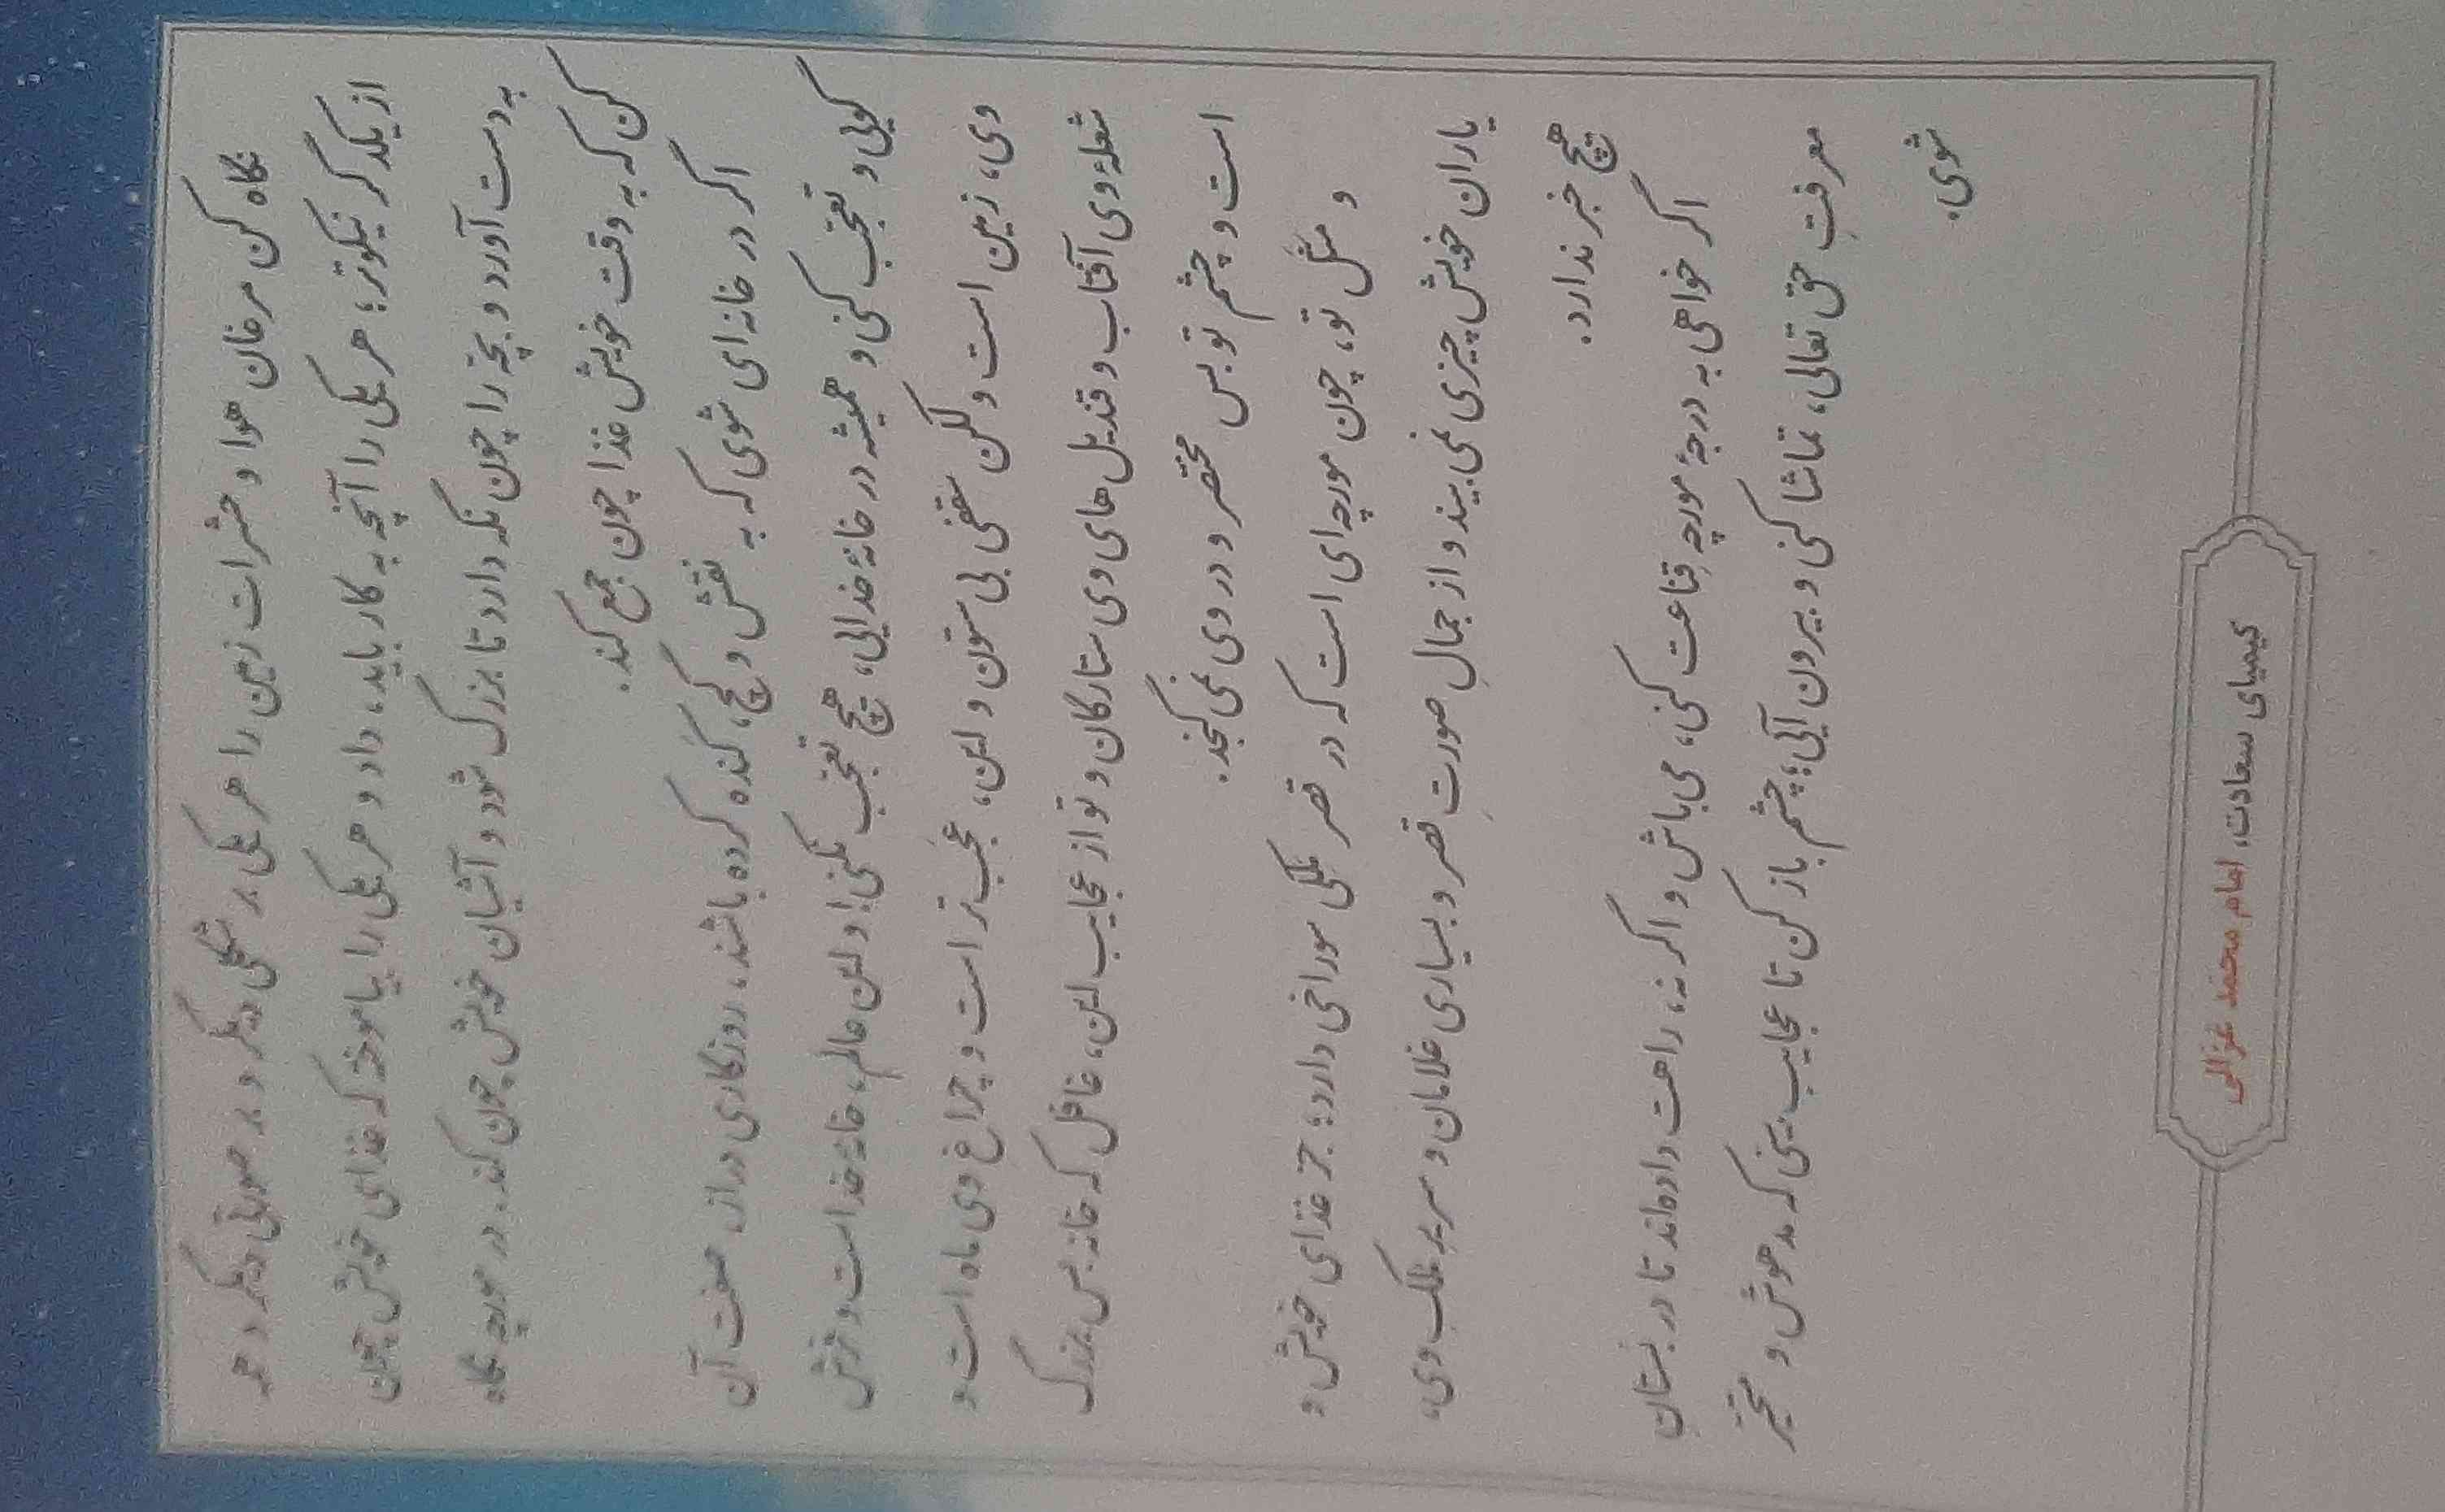 نگاه کن مرغان هوا و حشرات زمین را هر یکی بر شکلی دیگر و بر صورتی دیگر و همه
از یکدگر نیکوتر؛ هر یکی را آنچه به کار باید، داد و هر یکی را بیاموخته که غذای خویش چون
به دست آورد و بچّه را چون نگه دارد تا بزرگ شود و آشیان خویش چون کند. در مورچه نگاه
کن که به وقت خویش غذا چون جمع کند.
اگر در خانه‌ای شوی که به نقش و گچ، کَنده کرده باشند، روزگاری دراز، صفت آن
گویی و تعجّب کنی و همیشه در خانهٔ خدایی، هیچ تعجّب نکنی! و این عالم، خانهٔ خداست و فرش
وی، زمین است و لکن سقفی بی ستون و این، عَجَب تر است و چراغ وی ماه است و
شعلهٔ وی آفتاب و قندیل های وی ستارگان و تو از عجایب این، غافل که خانه بس بزرگ
است و چشم تو بس مختصر و در وی نمی گنجد.
و مَثَل تو، چون مورچه ای است که در قصر مَلِکی سوراخی دارد؛ جز غذای خویش و
یاران خویش چیزی نمی بیند و از جمالِ صورتِ قصر و بسیاری غلامان و سریرِ مُلکِ وی،
هیچ خبر ندارد.
اگر خواهی به درجهٔ مورچه قِناعت کنی، می باش و اگر نه، راهت داده‌اند تا در بُستانِ
معرفتِ حق تعالی، تماشا کنی و بیرون آیی؛ چشم باز کن تا عجایب بینی که مدهوش و متحیّر
شوی.
کیمیای سعادت، امام محمّد غزّالی